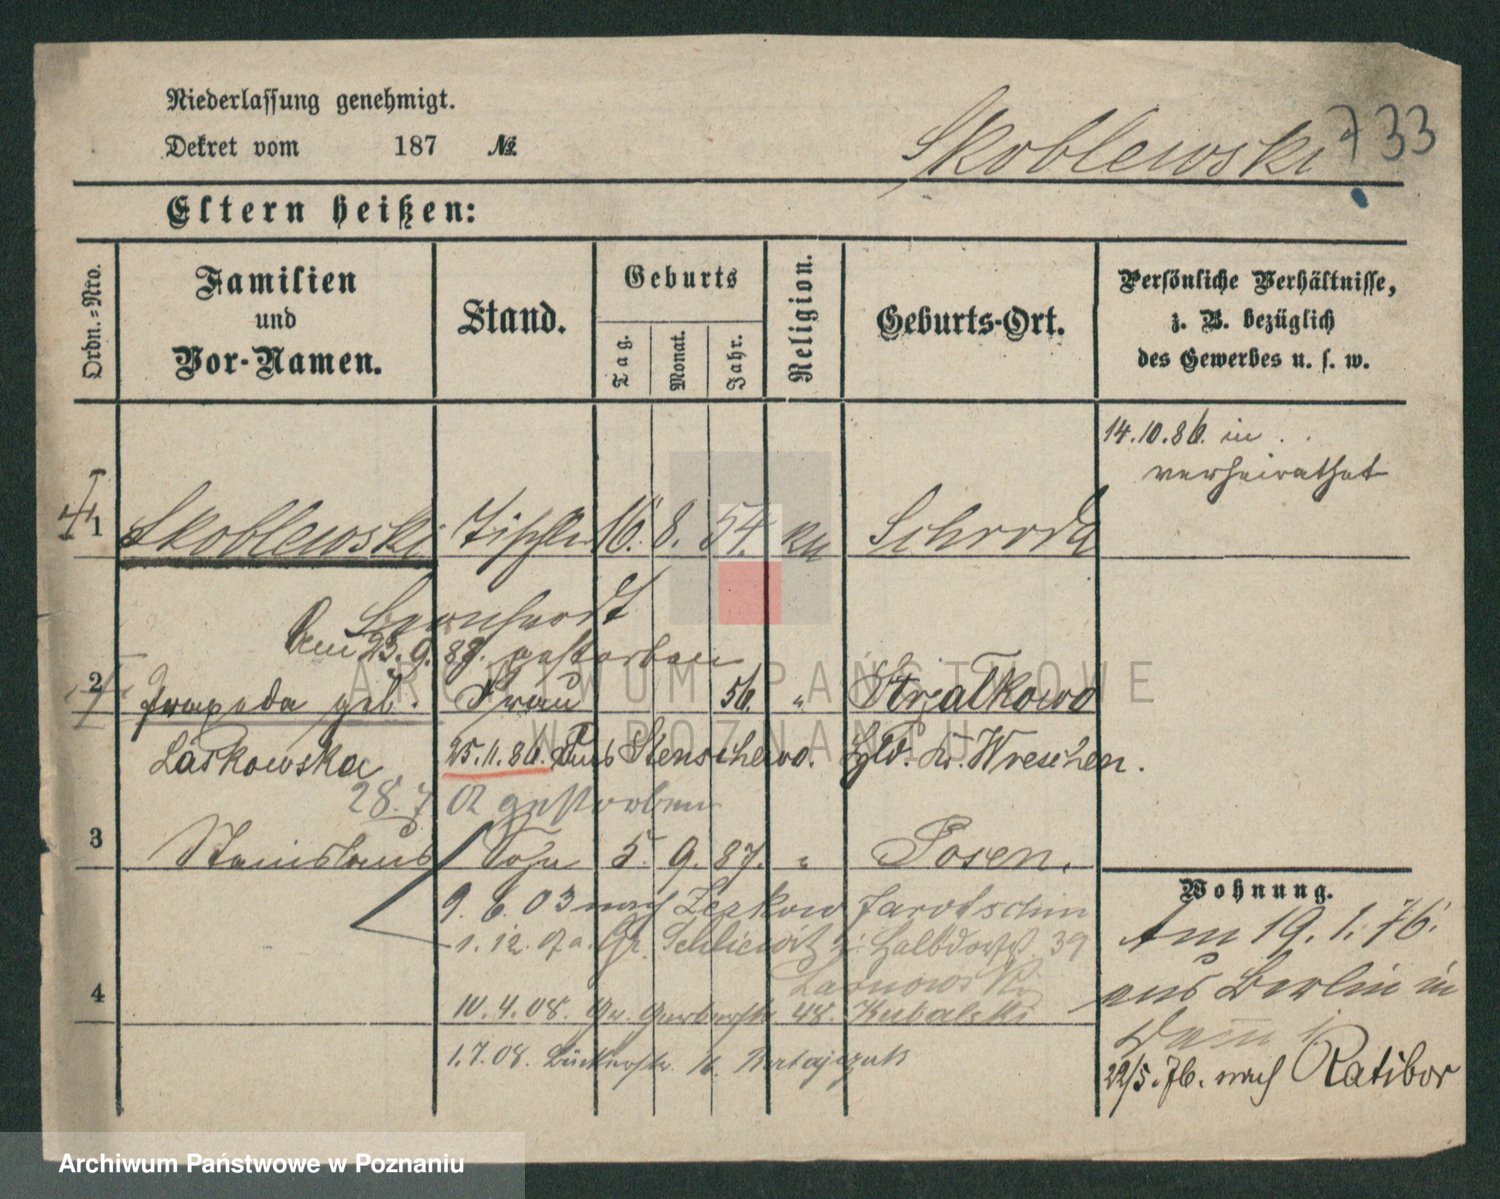 Niederlassung genehmigt.
Dekret vom 187 №
Skoblewski 733
Eltern heißen:
Ordn.-Nro.
Familien
und
Vor-Namen.
Stand.
Geburts
Tag.
Monat.
Jahr.
Religion.
Geburts-Ort.
Persönliche Verhältnisse,
z. B. bezüglich
des Gewerbes u. s. w.
14.10.86. in
verheirathet
1 Skoblewski Tischler 16. 8. 54. ka Schroda
Bernhardt
Am 23.9.87. gestorben
2 Praxeda geb. Frau 56. " Strzalkowo
Laskowska 25.11.86. aus Stenschewo. Kr. Wreschen.
28.7 02 gestorben
3 Stanislaus Sohn 5. 9. 87. " Posen.
9. 6. 03 nach Zerkow Jarotschin
1. 12. 07 a. Gr. Schliewitz Halbdorfstr. 39
Lasnowski
4
10. 4. 08. Gr. Gerberstr 48. Kubalski
1. 7. 08. Ratajczak
Wohnung.
Am 19. 1. 76.
aus Berlin in
22/5. 76. nach Ratibor
ARCHIWUM PAŃSTWOWE
W POZNANIU
Archiwum Państwowe w Poznaniu